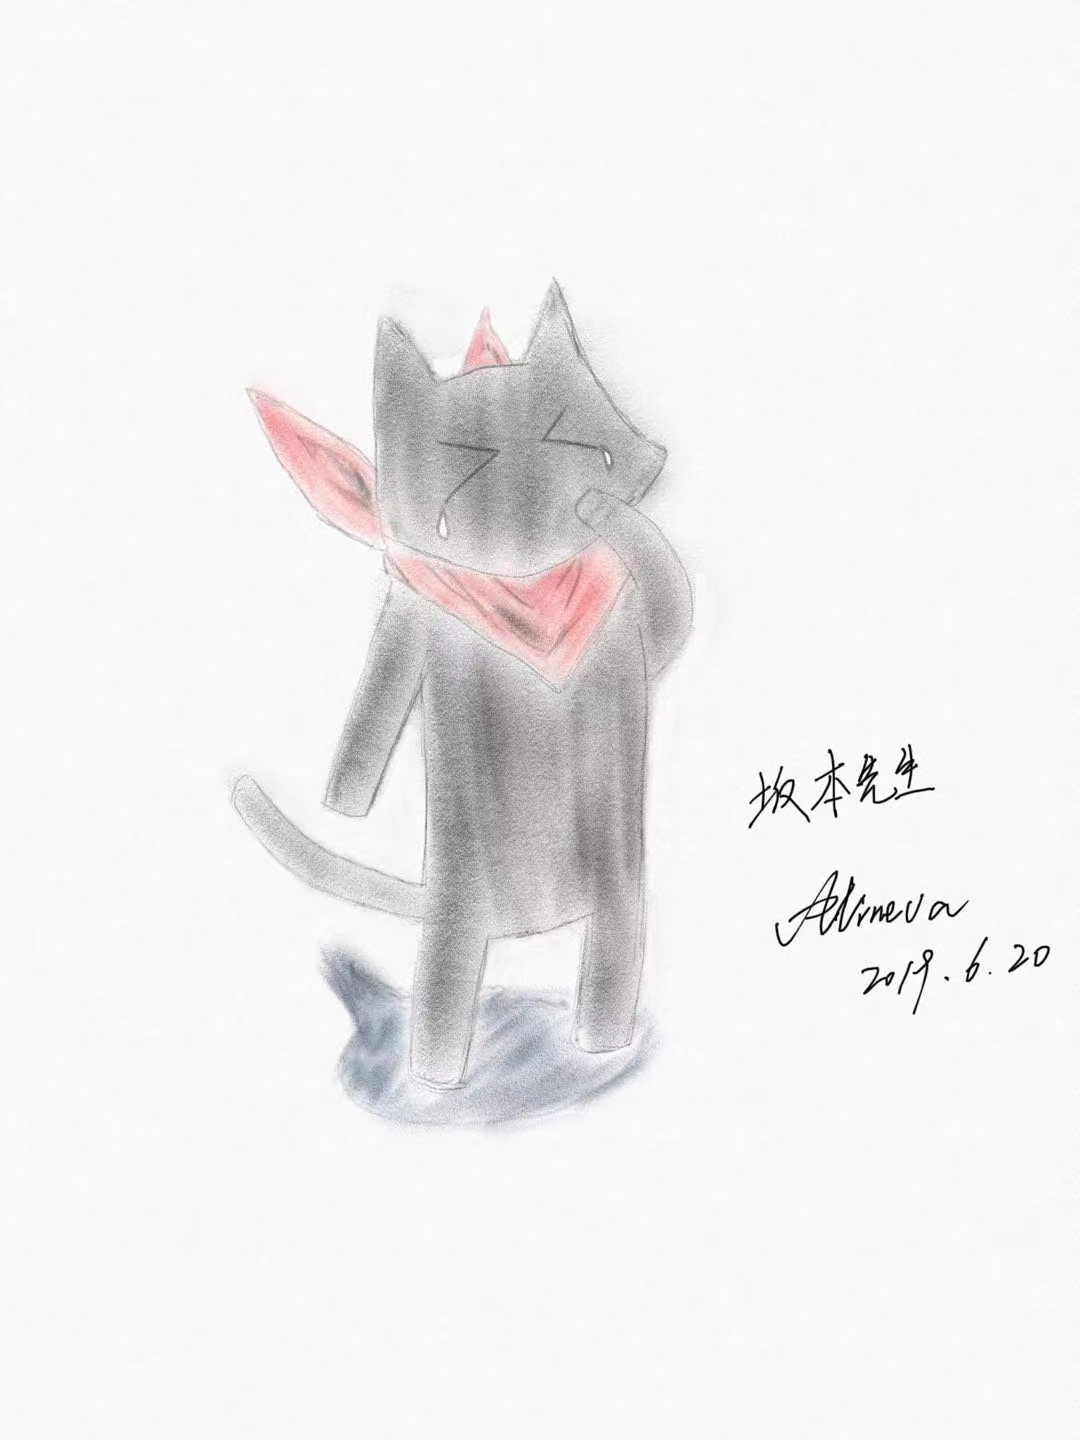 坂本先生
Alineva
2019.6.20